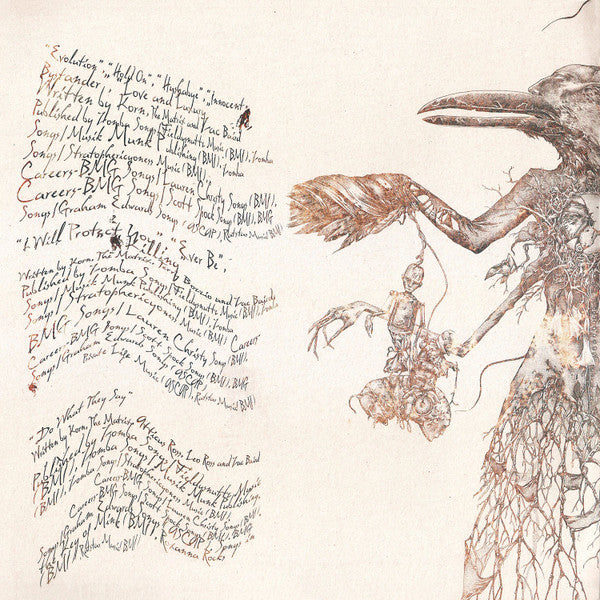 "Evolution", "Hold On", "Hushabye", "Innocent
Bystander", Love and Luxury
Written by Korn, The Matrix and Zac Baird
Published by Zomba Songs/Fieldynuttz Music (BMI), Zomba
Songs/Musik Munk Publishing (BMI), Zomba
Songs/Stratosphericyoness Music (BMI),
Careers-BMG Songs/Lauren Christy Songs (BMI),
Careers-BMG Songs/Scott Spock Songs (BMI), BMG
Songs/Graham Edwards Songs (ASCAP), Redstao Music (BMI)
&
"I Will Protect You", "Ever Be",
Killing
Written by Korn, The Matrix, and Zac Baird
Published by Zomba Songs/Fieldynuttz Music (BMI), Zomba
Songs/Musik Munk Publishing (BMI), Zomba
Songs/Stratosphericyoness Music (BMI),
BMG Songs/Lauren Christy Songs (BMI) Career
Careers-BMG Songs/Scott Spock Songs (BMI), BMG
Songs/Graham Edwards Songs (ASCAP),
Life Music (ASCAP), Redstao Music (BMI)
"Do What They Say"
Written by Korn, The Matrix, Atticus Ross, Leo Ross and Zac Baird
Published by Zomba Songs/Fieldynuttz Music
(BMI), Zomba Songs/Musik Munk Publishing
(BMI), Zomba Songs/Stratosphericyoness Music (BMI),
Careers-BMG Songs/Lauren Christy Songs (BMI),
Careers-BMG Songs/Scott Spock Songs (BMI), BMG
Songs/Graham Edwards Songs (ASCAP), Songs in
the Key of Mink (BMI), Roxanna Rocks
(BMI), Redstao Music (BMI)